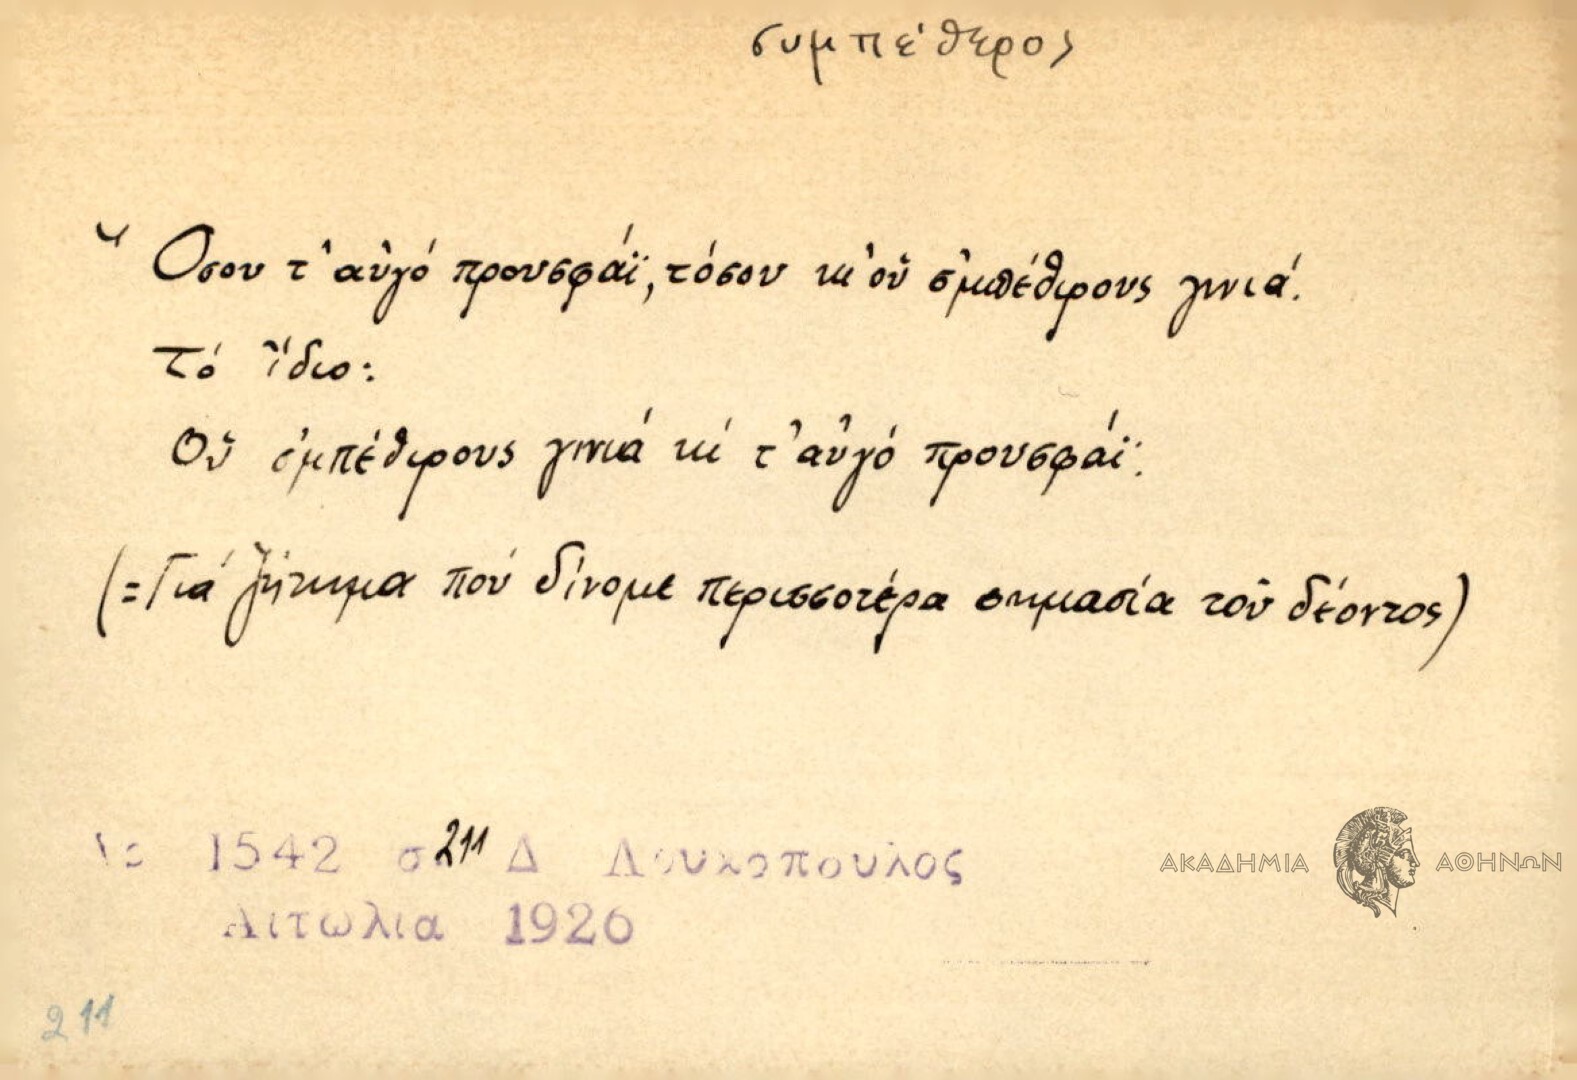 συμπέθερος
Ὅσου τ' αὐγό προυσφάϊ, τόσου κι' οὑ σ'μπέθιρους γινιά.
Τό ἴδιο:
Οὑ σ'μπέθιρους γινιά κί τ' αὐγό προυσφάϊ.
(=Γιά ζήτημα πού δίνομε περισσοτέρα σημασία τοῦ δέοντος)
1542 σ. 211 Δ Λουκοπουλος
Αιτωλια 1926
ΑΚΑΔΗΜΙΑ ΑΘΗΝΩΝ
211